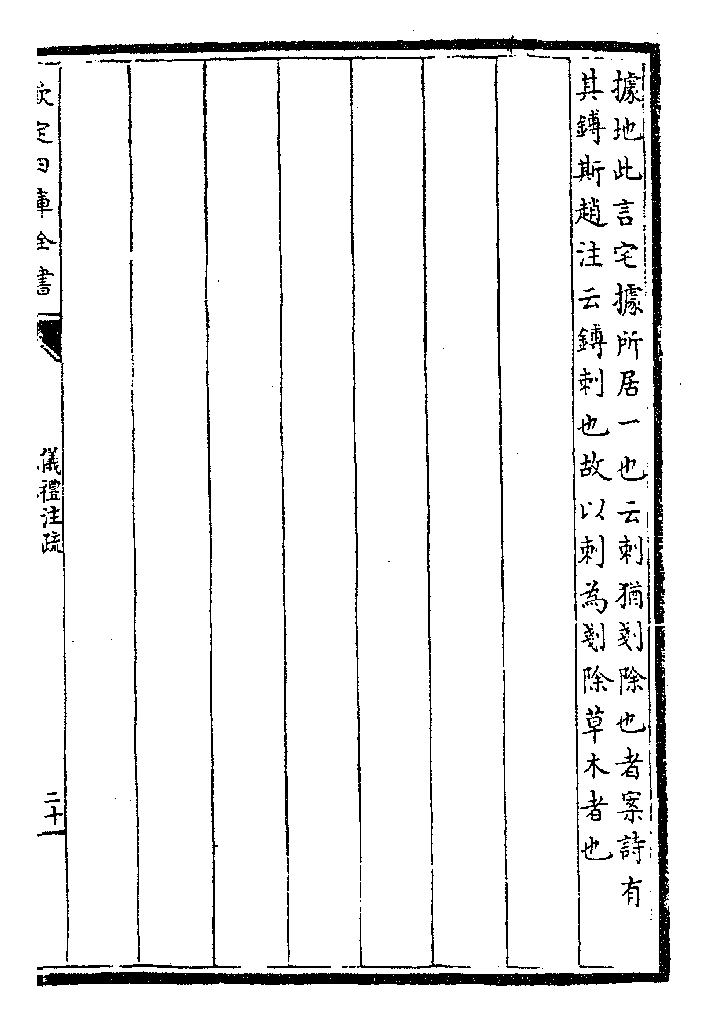 據地此言宅據所居一也云刺猶剗除也者案詩有
其鎛斯趙注云鎛刺也故以刺為剗除草木者也
欽定四庫全書
儀禮注疏
二十